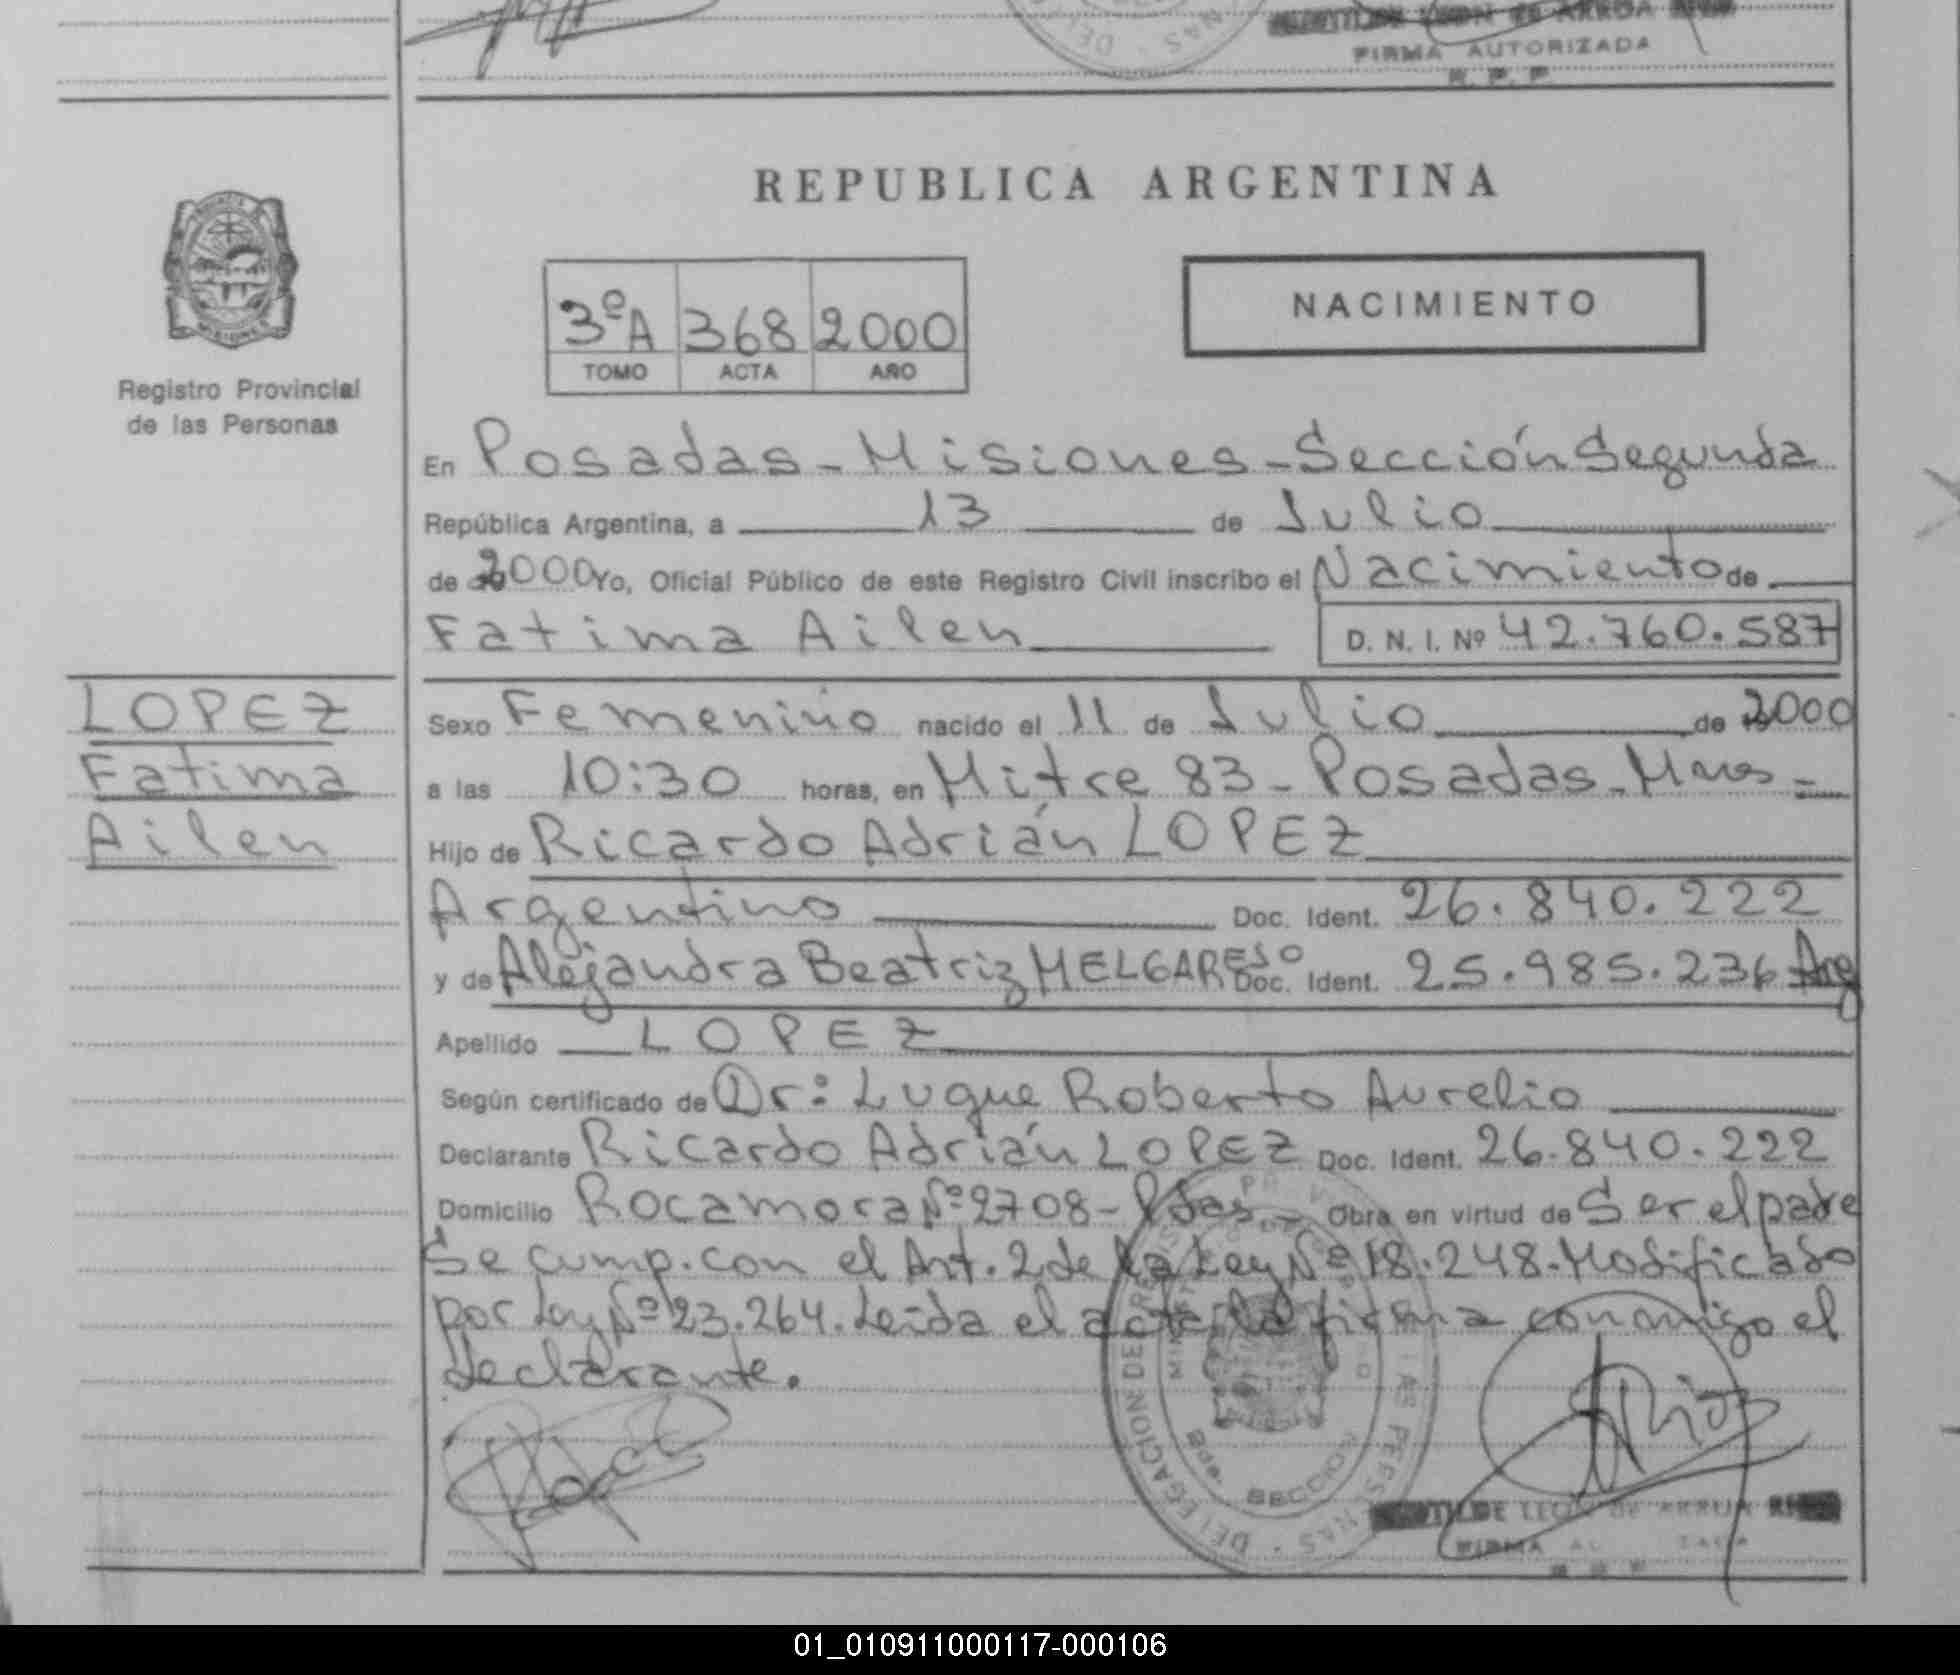 FIRMA AUTORIZADA
R. P. P
REPUBLICA ARGENTINA
3ºA 368 2000
TOMO ACTA AÑO
NACIMIENTO
MISIONES
Registro Provincial
de las Personas
En Posadas - Misiones - Sección Segunda
República Argentina, a 13 de Julio
de 2000 Yo, Oficial Público de este Registro Civil inscribo el Nacimiento de
Fatima Ailen D. N. I. Nº 42.760.587
LOPEZ
Fatima
Ailen
Sexo Femenino nacido el 11 de Julio de 2000
a las 10:30 horas, en Mitre 83 - Posadas - Mnes -
Hijo de Ricardo Adrián LOPEZ
Argentino Doc. Ident. 26.840.222
y de Alejandra Beatriz MELGAREJO Doc. Ident. 25.985.236 Arg
Apellido LOPEZ
Según certificado de Dr: Luque Roberto Aurelio
Declarante Ricardo Adrián LOPEZ Doc. Ident. 26.840.222
Domicilio Rocamora Nº 2708 - Pdas - Obra en virtud de Ser el padre
Se cump. con el Art. 2 de la Ley Nº 18.248. Modificado
por Ley Nº 23.264. Leida el acta la firma conmigo el
declarante.
DELEGACION DE REGIS
2da. SECCION
FIRMA
01_010911000117-000106